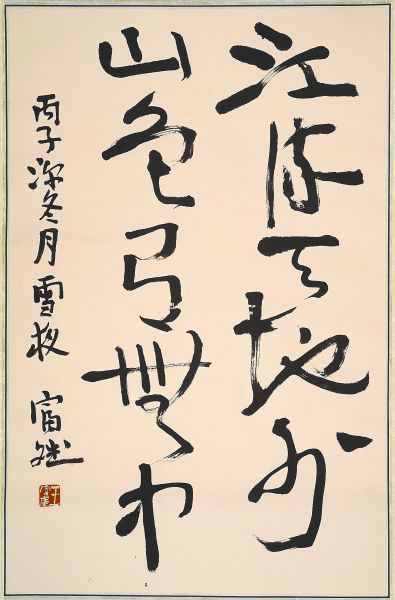 江流天地外
山色有無中
丙子深冬月雪夜